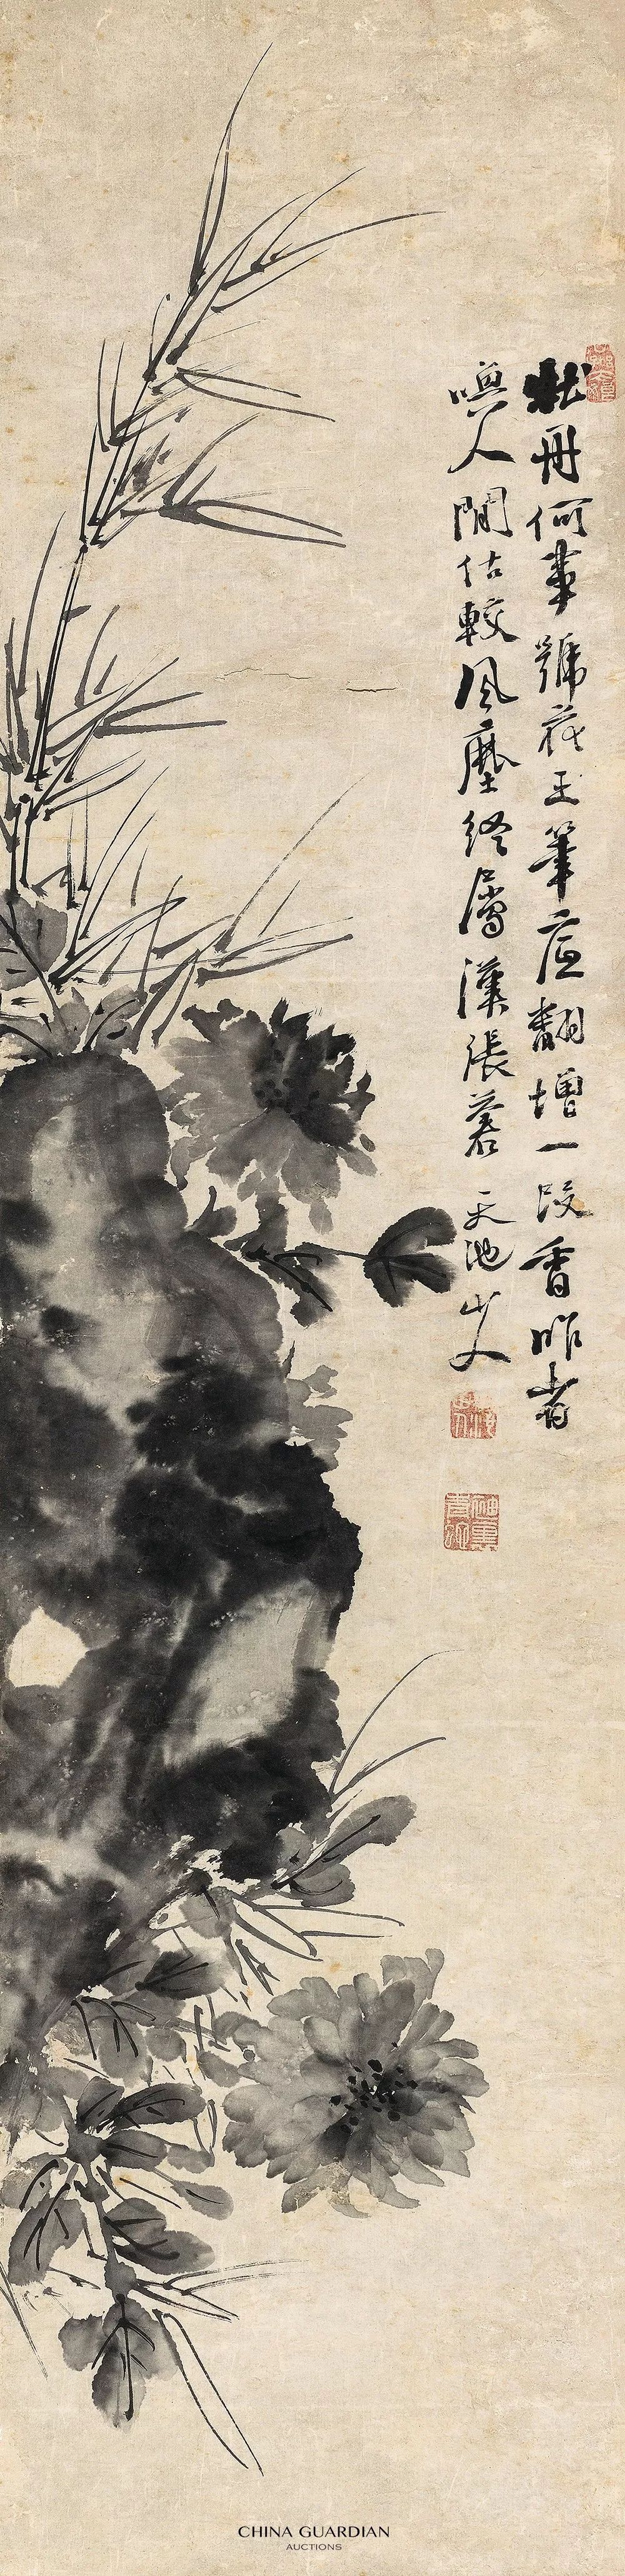 牡丹何事號花王筆底翻增一段香昨者
喚人閒估較風塵終屬漢張蒼 天池山人
CHINA GUARDIAN
AUCTIONS